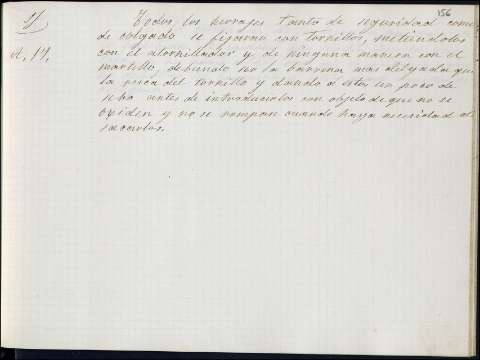 156
Todos los herrajes tanto de seguridad como
de colgado se fijaran con tornillos, metiendolos
con el atornillador y de ninguna manera con el
martillo, debiendo ser la barrena mas delgada que
la rosca del tornillo y dando a estos un poco de
sebo antes de introducirlos con objeto de que no se
oxiden y no se rompan cuando haya necesidad de
sacarlos.